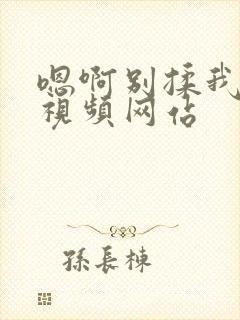 嗯啊别揉我
视频网站
孫長棟